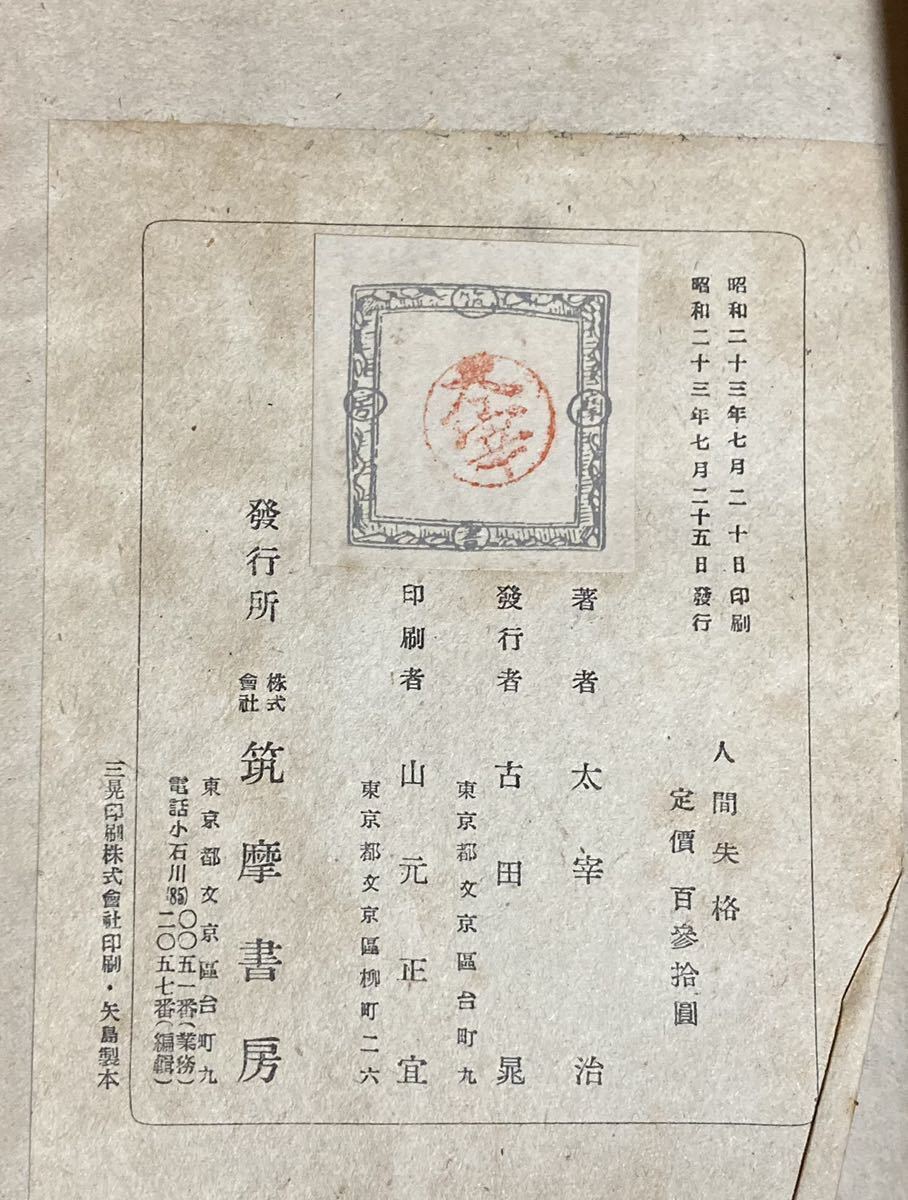 昭和二十三年七月二十日印刷
昭和二十三年七月二十五日發行
人間失格
定價 百參拾圓
著者 太宰治
發行者 古田晁
東京都文京區台町九
印刷者 山元正宜
東京都文京區柳町二六
發行所 株式會社 筑摩書房
東京都文京區台町九
電話小石川(85)〇〇五一番(業務)
二〇五七番(編輯)
三晃印刷株式會社印刷・矢島製本
筑
摩
書
房
太宰